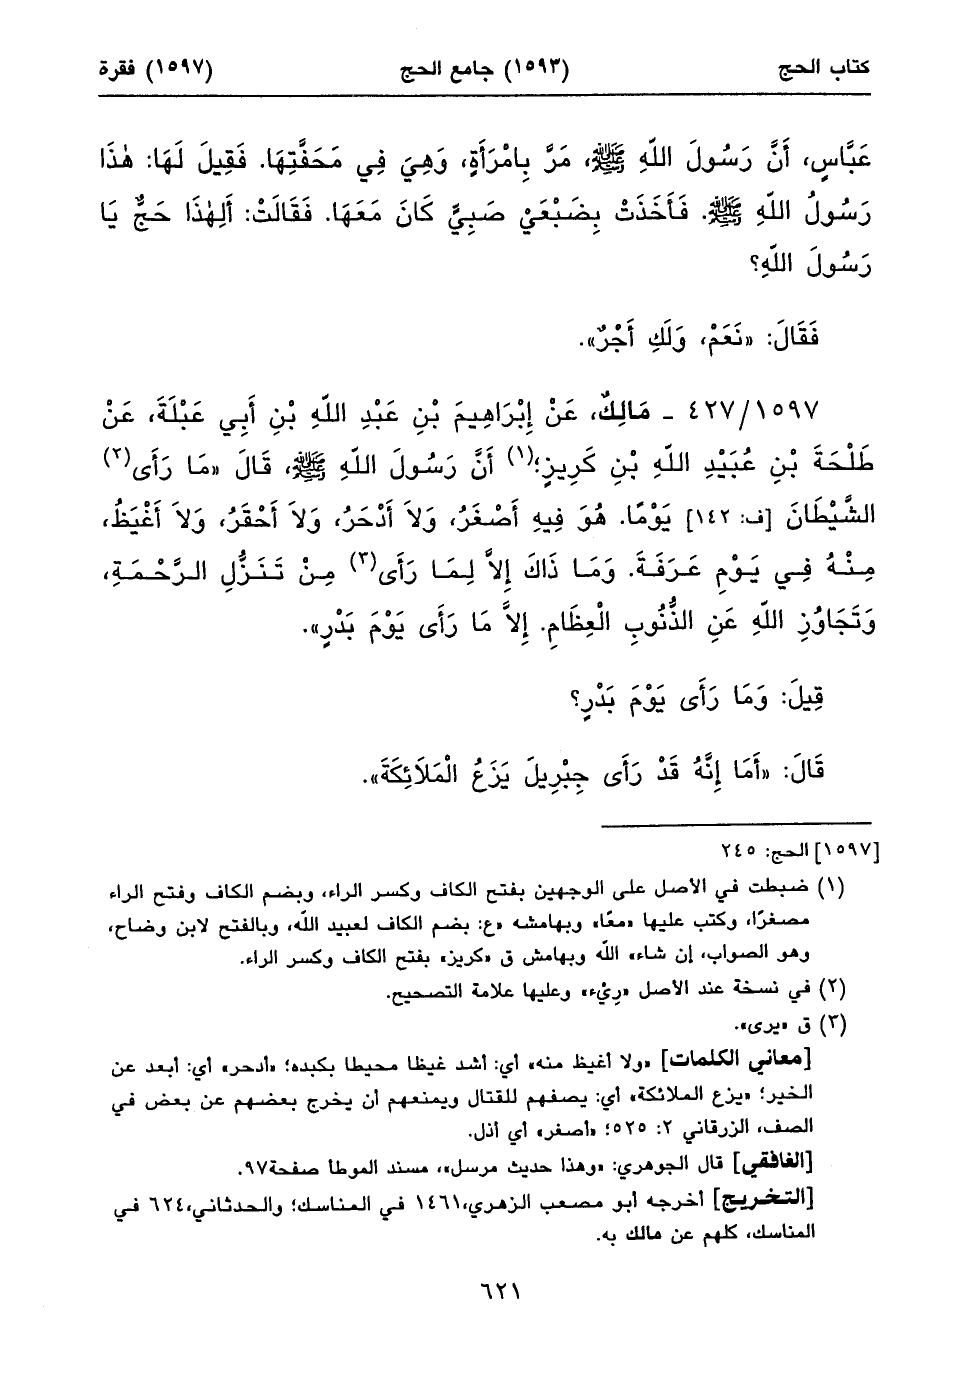 كتاب الحج (١٥٩٣) جامع الحج (١٥٩٧) فقرة
عَبَّاسٍ، أَنَّ رَسُولَ اللّهِ ﷺ، مَرَّ بِامْرَأَةٍ، وَهِيَ فِي مَحَفَّتِهَا. فَقِيلَ لَهَا: هٰذَا
رَسُولُ اللّهِ ﷺ. فَأَخَذَتْ بِضَبْعَيْ صَبِيٍّ كَانَ مَعَهَا. فَقَالَتْ: أَلِهٰذَا حَجٌّ يَا
رَسُولَ اللّهِ؟
فَقَالَ: «نَعَمْ، وَلَكِ أَجْرٌ».
٤٢٧/١٥٩٧ - مَالِكٌ، عَنْ إِبْرَاهِيمَ بْنِ عَبْدِ اللّهِ بْنِ أَبِي عَبْلَةَ، عَنْ
طَلْحَةَ بْنِ عُبَيْدِ اللّهِ بْنِ كَرِيزٍ؛(١) أَنَّ رَسُولَ اللّهِ ﷺ، قَالَ «مَا رَأَى(٢)
الشَّيْطَانَ [ف: ١٤٢] يَوْمًا. هُوَ فِيهِ أَصْغَرُ، وَلاَ أَدْحَرُ، وَلاَ أَحْقَرُ، وَلاَ أَغْيَظُ،
مِنْهُ فِي يَوْمِ عَرَفَةَ. وَمَا ذَاكَ إِلاَّ لِمَا رَأَى(٣) مِنْ تَنَزُّلِ الرَّحْمَةِ،
وَتَجَاوُزِ اللّهِ عَنِ الذُّنُوبِ الْعِظَامِ. إِلاَّ مَا رَأَى يَوْمَ بَدْرٍ».
قِيلَ: وَمَا رَأَى يَوْمَ بَدْرٍ؟
قَالَ: «أَمَا إِنَّهُ قَدْ رَأَى جِبْرِيلَ يَزَعُ الْمَلاَئِكَةَ».
[١٥٩٧] الحج: ٢٤٥
(١) ضبطت في الأصل على الوجهين بفتح الكاف وكسر الراء، وبضم الكاف وفتح الراء
مصغرًا، وكتب عليها «معًا» وبهامشه «ع: بضم الكاف لعبيد الله، وبالفتح لابن وضاح،
وهو الصواب، إن شاء» الله وبهامش ق «كريز» بفتح الكاف وكسر الراء.
(٢) في نسخة عند الأصل «رِيْء» وعليها علامة التصحيح.
(٣) ق «يرى».
[معاني الكلمات] «ولا أغيظ منه» أي: أشد غيظا محيطا بكبده؛ «أدحر» أي: أبعد عن
الخير؛ «يزع الملائكة» أي: يصفهم للقتال ويمنعهم أن يخرج بعضهم عن بعض في
الصف، الزرقاني ٢: ٥٢٥؛ «أصغر» أي أذل.
[الغافقي] قال الجوهري: «وهذا حديث مرسل»، مسند الموطأ صفحة٩٧.
[التخريج] أخرجه أبو مصعب الزهري،١٤٦١ في المناسك؛ والحدثاني،٦٢٤ في
المناسك، كلهم عن مالك به.
٦٢١